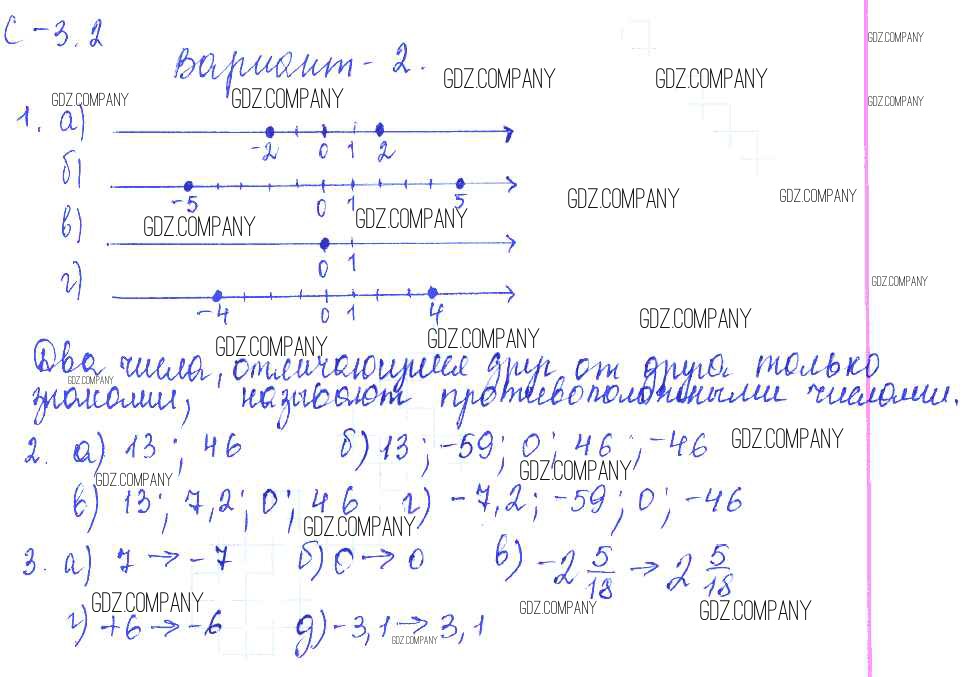 С-3.2
Вариант-2.
GDZ.COMPANY GDZ.COMPANY GDZ.COMPANY
GDZ.COMPANY GDZ.COMPANY GDZ.COMPANY
1. а) -2 0 1 2
б) -5 0 1 5
GDZ.COMPANY GDZ.COMPANY
GDZ.COMPANY GDZ.COMPANY
в) 0 1
GDZ.COMPANY
г) -4 0 1 4
GDZ.COMPANY
GDZ.COMPANY GDZ.COMPANY
Два числа, отличающиеся друг от друга только
GDZ.COMPANY
знаками, называют противоположными числами.
2. а) 13; 46 б) 13; -59; 0; 46; -46 GDZ.COMPANY
GDZ.COMPANY GDZ.COMPANY
в) 13; 7,2; 0; 46 г) -7,2; -59; 0; -46
GDZ.COMPANY
3. а) 7 → -7 б) 0 → 0 в) -2 5/18 → 2 5/18
GDZ.COMPANY GDZ.COMPANY GDZ.COMPANY
г) +6 → -6 д) -3,1 → 3,1
GDZ.COMPANY